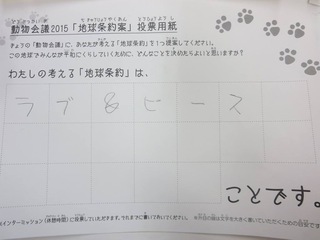 動物会議2015「地球条約案」投票用紙
チョウの「動物会議」に、あなたが考える「地球条約」を1つ提案してください。
この地球でみんなが平和にくらしていくために、どんなことを決めたらよいと思いますか?
わたしの考える「地球条約」は、
ラブ&ピース
ことです。
インターミッション(休憩時間)に投票していただきます。それまでに書いておいてください。